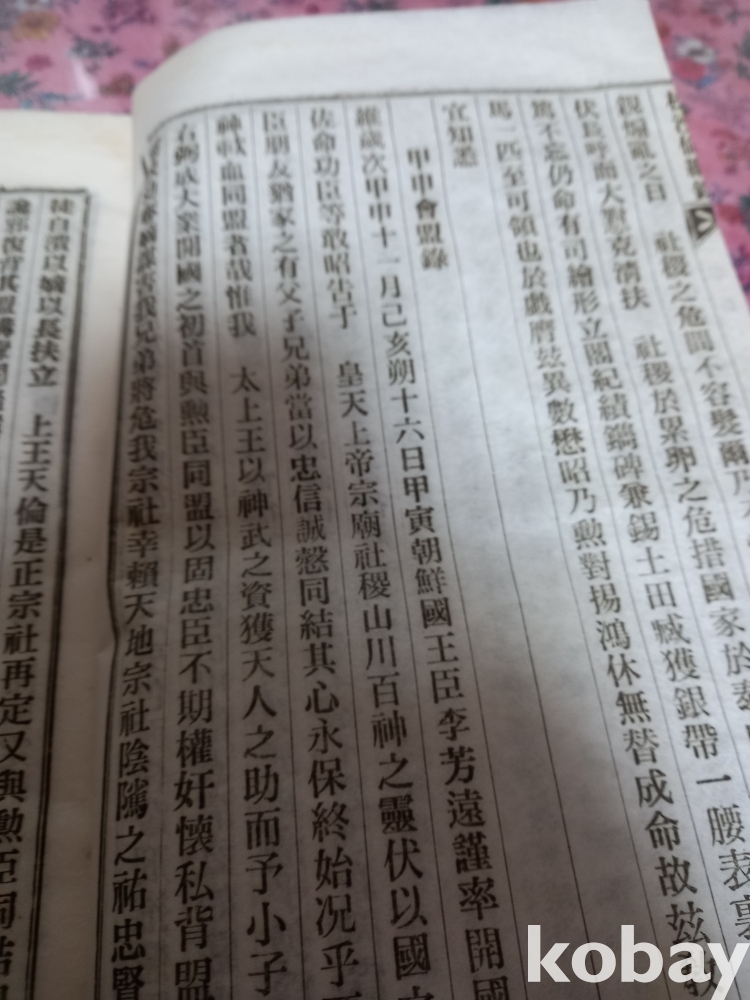 親煽亂之日 社稷之危間不容髮爾乃
伏長呼而大懟克濟扶 社稷於累卵之危措國家於泰
篤不忘仍命有司繪形立閣紀績鐫碑兼錫土田臧獲銀帶一腰表裏
馬一匹至可領也於戲膺玆異數懋昭乃勳對揚鴻休無替成命故玆敎
宜知悉
甲申會盟錄
維歲次甲申十一月己亥朔十六日甲寅朝鮮國王臣李芳遠謹率開國
佐命功臣等敢昭告于 皇天上帝宗廟社稷山川百神之靈伏以國
臣朋友猶家之有父子兄弟當以忠信誠慤同結其心永保終始况乎
神歃血同盟者哉惟我 太上王以神武之資獲天人之助而予小子
右弼成大業開國之初首與勳臣同盟以固忠臣不期權奸懷私背盟
我兄弟將危我宗社幸賴天地宗社陰隲之祐忠賢
徒自潰以嫡以長扶立 上王天倫是正宗社再定又與勳臣同結
kobay